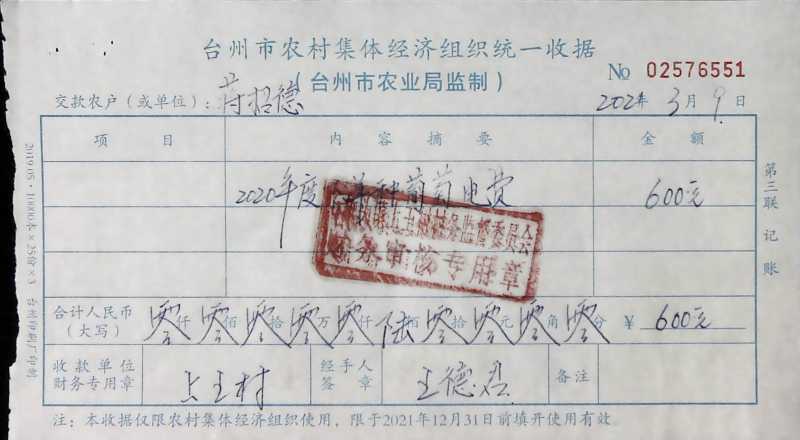 台州市农村集体经济组织统一收据
(台州市农业局监制)
No 02576551
交款农户(或单位): 蒋招德
202 年 3 月 9 日
项 目 内 容 摘 要 金 额
2020年度 种葡萄电费 600元
村务监督委员会
财务审核专用章
合计人民币(大写) 零仟零佰零拾零万零仟陆佰零拾零元零角零分 ¥ 600元
收款单位财务专用章 上王村 经手人签章 王德 备注
注:本收据仅限农村集体经济组织使用,限于2021年12月31日前填开使用有效
第三联 记账
2019.05·10000本×25份×3 台州 印刷厂印制